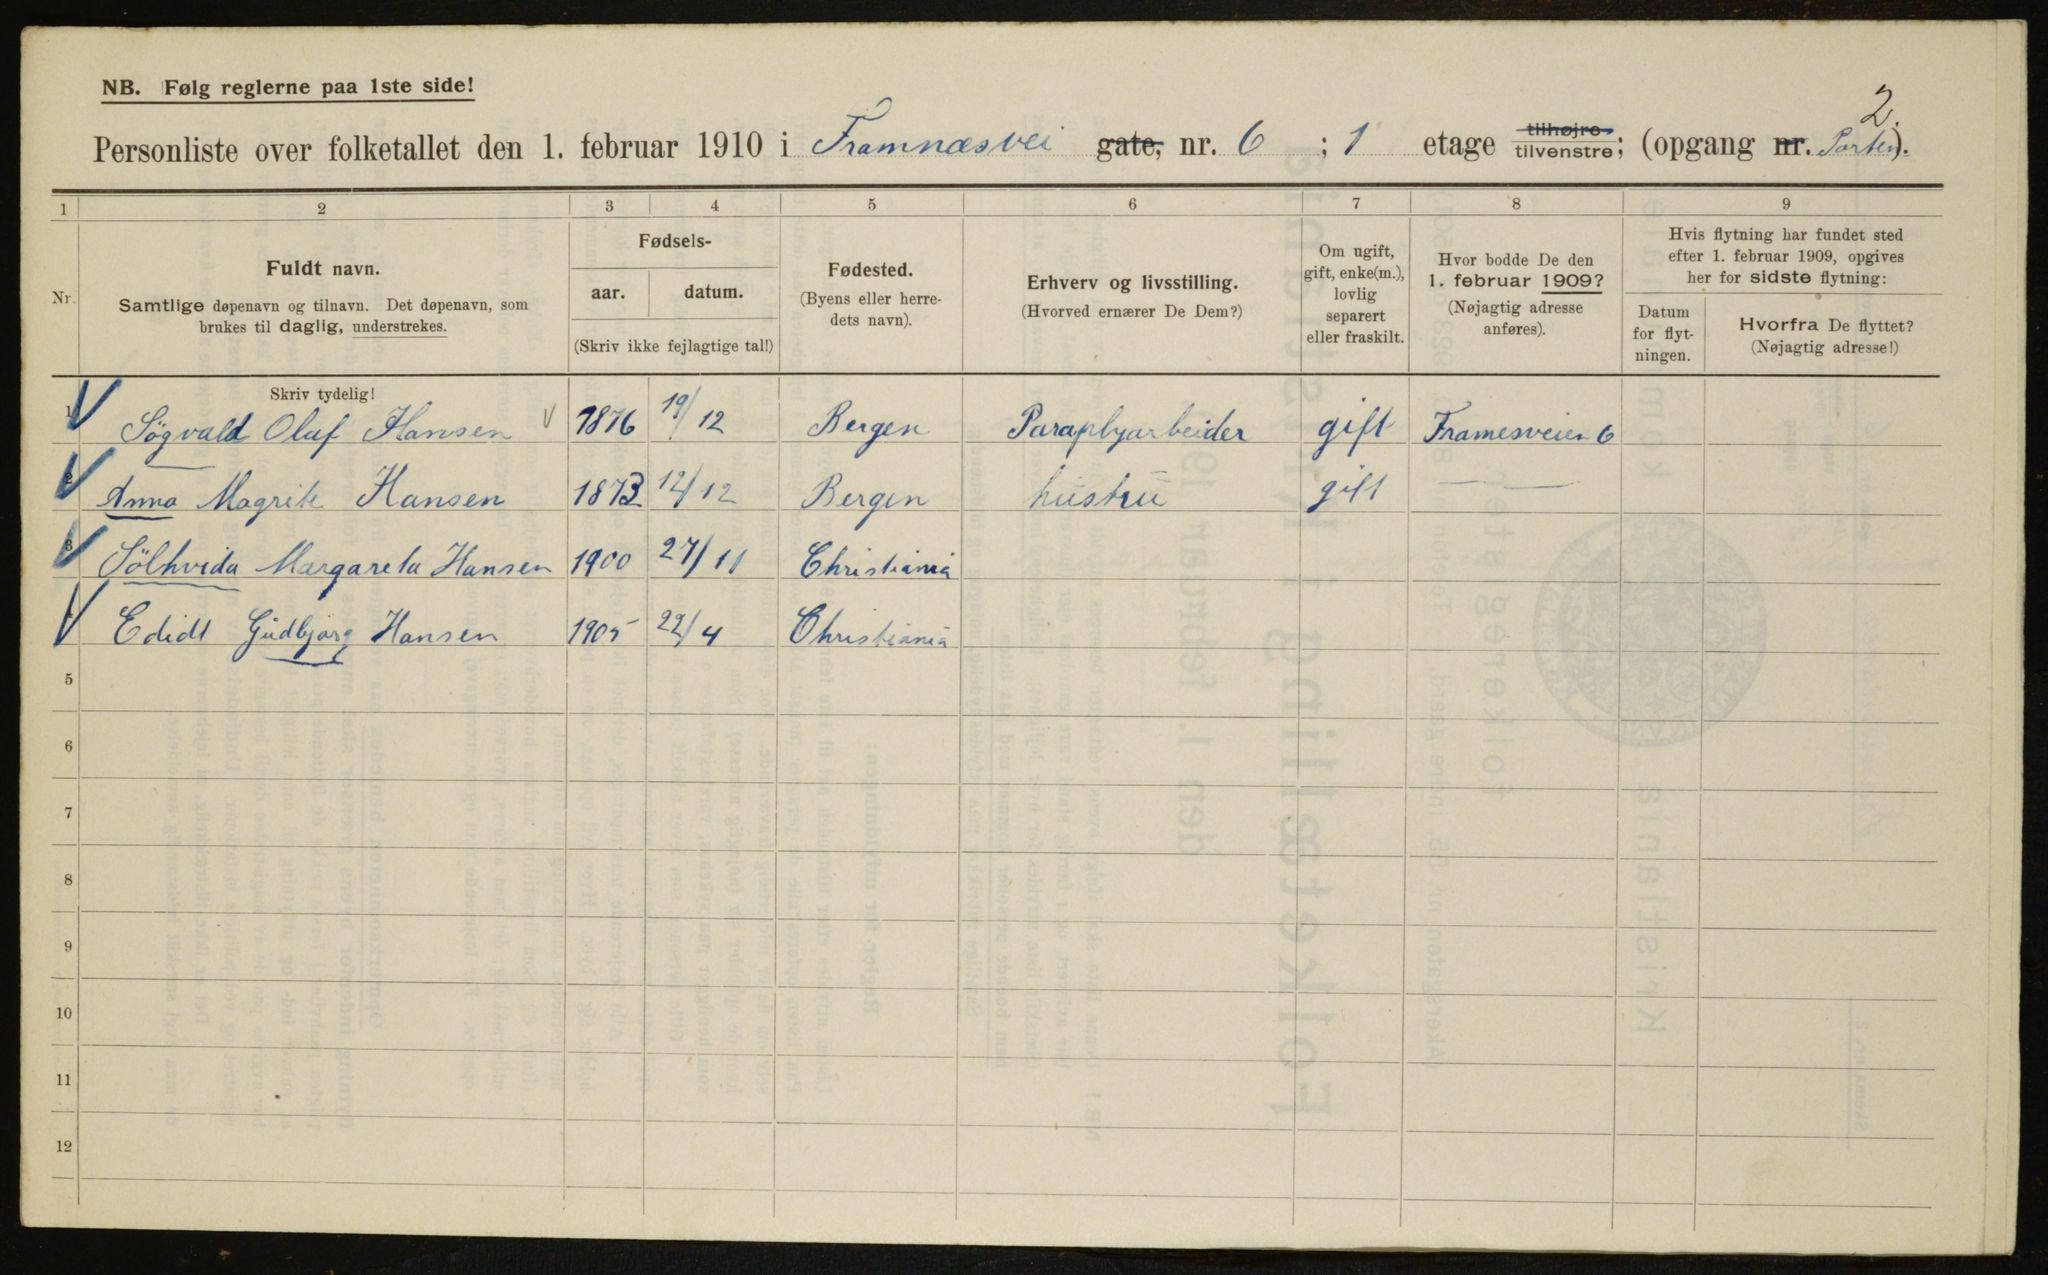 NB. Følg reglerne paa 1ste side!
2.
Personliste over folketallet den 1. februar 1910 i Framnæsvei gate, nr. 6 ; 1 etage tilhøjre tilvenstre; (opgang nr. Porten).
1 2 3 4 5 6 7 8 9
Nr.
Fuldt navn.
Samtlige døpenavn og tilnavn. Det døpenavn, som
brukes til daglig, understrekes.
Fødsels-
aar. datum.
(Skriv ikke fejlagtige tal!)
Fødested.
(Byens eller herre-
dets navn).
Erhverv og livsstilling.
(Hvorved ernærer De Dem?)
Om ugift,
gift, enke(m.),
lovlig
separert
eller fraskilt.
Hvor bodde De den
1. februar 1909?
(Nøjagtig adresse
anføres).
Hvis flytning har fundet sted
efter 1. februar 1909, opgives
her for sidste flytning:
Datum
for flyt-
ningen.
Hvorfra De flyttet?
(Nøjagtig adresse!)
Skriv tydelig!
1 Sögvald Olaf Hansen 1876 19/12 Bergen Paraplyarbeider gift Framesveien 6
2 Anna Magrite Hansen 1873 12/12 Bergen hustru gift — —
3 Sölhvida Margareta Hansen 1900 27/11 Christiania
Edidt Gudbjørg Hansen 1905 22/4 Christiania
5
6
7
8
9
10
11
12